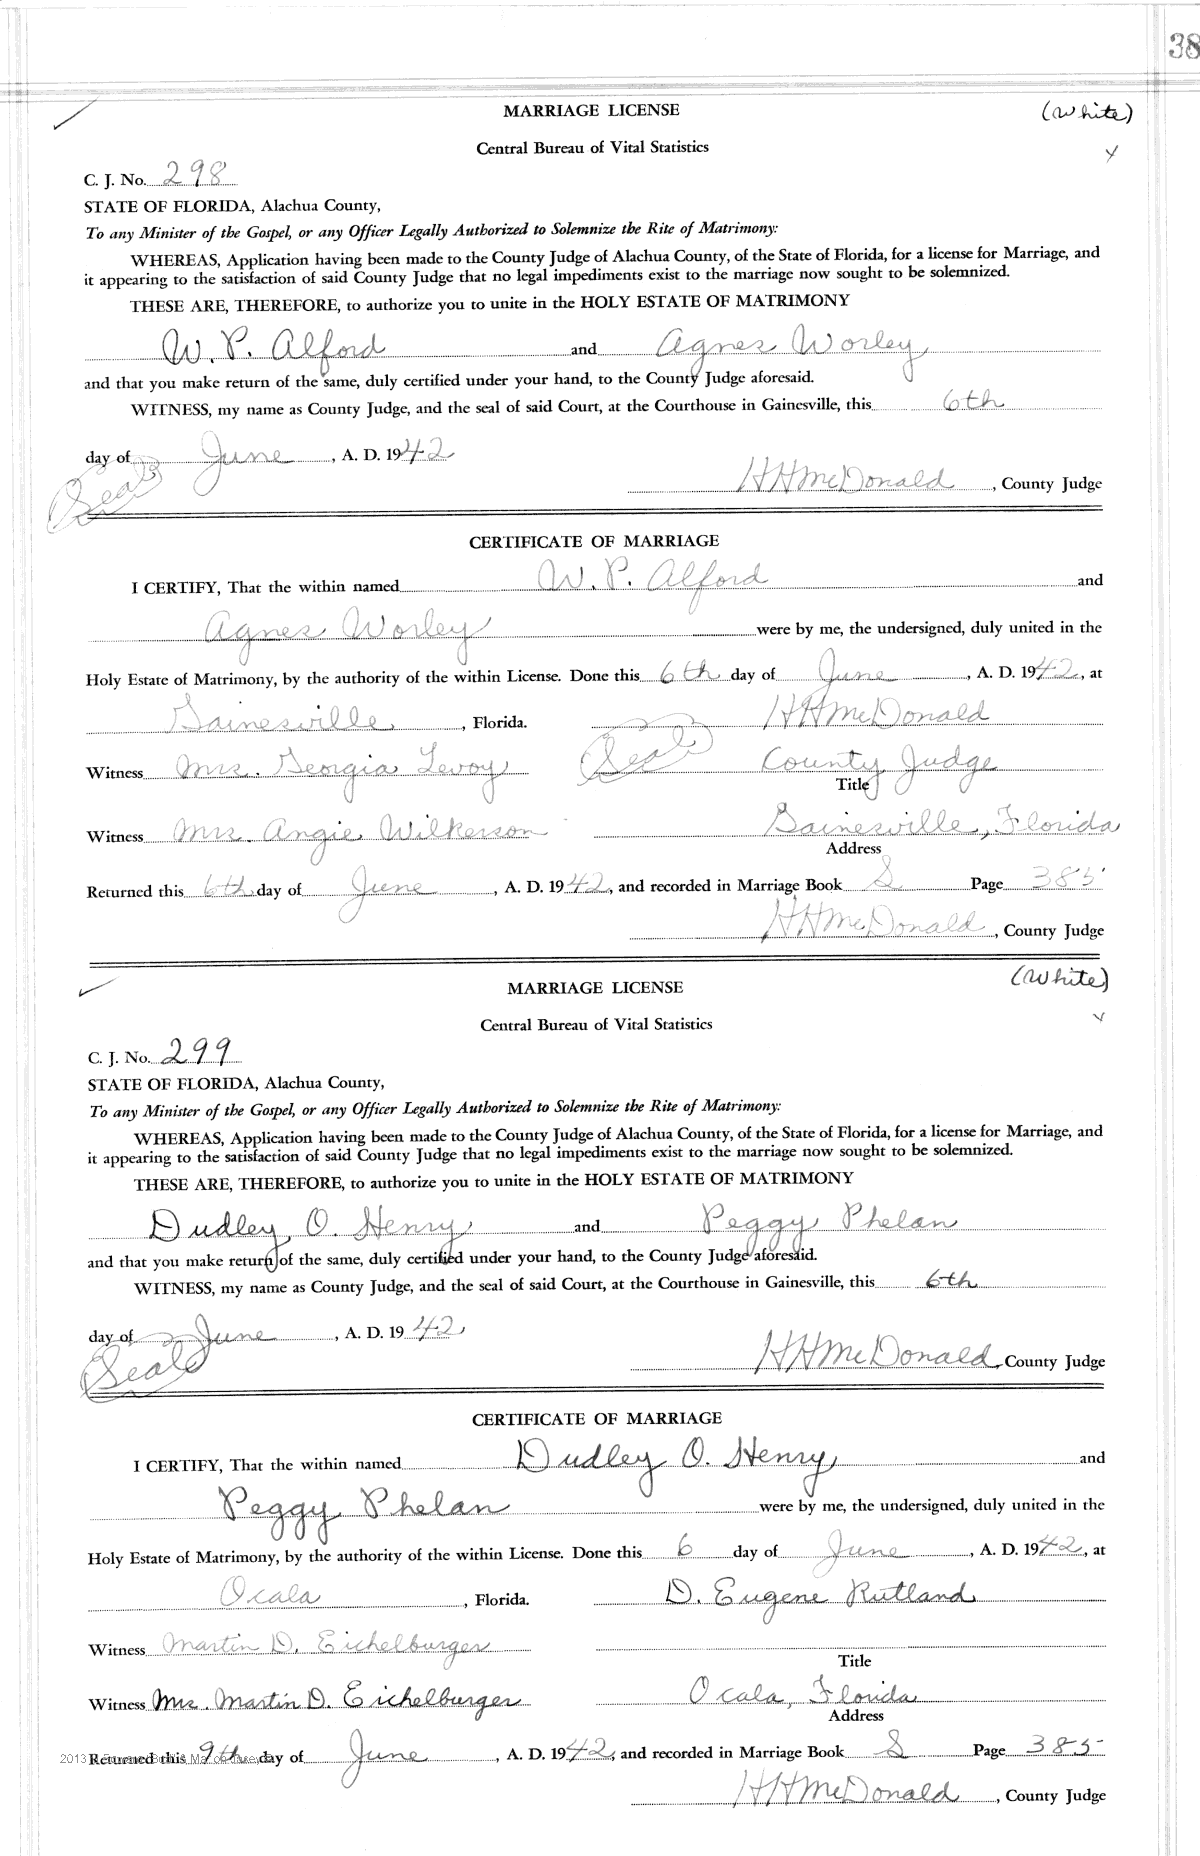 38
MARRIAGE LICENSE (White)
Central Bureau of Vital Statistics
C. J. No. 298
STATE OF FLORIDA, Alachua County,
To any Minister of the Gospel, or any Officer Legally Authorized to Solemnize the Rite of Matrimony:
WHEREAS, Application having been made to the County Judge of Alachua County, of the State of Florida, for a license for Marriage, and
it appearing to the satisfaction of said County Judge that no legal impediments exist to the marriage now sought to be solemnized.
THESE ARE, THEREFORE, to authorize you to unite in the HOLY ESTATE OF MATRIMONY
W. P. Alford and Agnes Worley
and that you make return of the same, duly certified under your hand, to the County Judge aforesaid.
WITNESS, my name as County Judge, and the seal of said Court, at the Courthouse in Gainesville, this 6th
day of June, A. D. 1942
(Seal) HHMcDonald, County Judge
CERTIFICATE OF MARRIAGE
I CERTIFY, That the within named W. P. Alford and
Agnes Worley were by me, the undersigned, duly united in the
Holy Estate of Matrimony, by the authority of the within License. Done this 6th day of June, A. D. 1942, at
Gainesville, Florida. HHMcDonald
Witness Mrs. Georgia Levoy (Seal) County Judge
Title
Witness Mrs. Angie Wilkerson Gainesville, Florida
Address
Returned this 6th day of June, A. D. 1942, and recorded in Marriage Book S Page 385
HHMcDonald, County Judge
MARRIAGE LICENSE (White)
Central Bureau of Vital Statistics
C. J. No. 299
STATE OF FLORIDA, Alachua County,
To any Minister of the Gospel, or any Officer Legally Authorized to Solemnize the Rite of Matrimony:
WHEREAS, Application having been made to the County Judge of Alachua County, of the State of Florida, for a license for Marriage, and
it appearing to the satisfaction of said County Judge that no legal impediments exist to the marriage now sought to be solemnized.
THESE ARE, THEREFORE, to authorize you to unite in the HOLY ESTATE OF MATRIMONY
Dudley O. Henry and Peggy Phelan
and that you make return of the same, duly certified under your hand, to the County Judge aforesaid.
WITNESS, my name as County Judge, and the seal of said Court, at the Courthouse in Gainesville, this 6th
day of June, A. D. 1942
(Seal) HHMcDonald, County Judge
CERTIFICATE OF MARRIAGE
I CERTIFY, That the within named Dudley O. Henry and
Peggy Phelan were by me, the undersigned, duly united in the
Holy Estate of Matrimony, by the authority of the within License. Done this 6 day of June, A. D. 1942, at
Ocala, Florida. D. Eugene Rutland
Witness Martin D. Eichelburger
Title
Witness Mrs. Martin D. Eichelburger Ocala, Florida
Address
Returned this 9th day of June, A. D. 1942, and recorded in Marriage Book S Page 385
HHMcDonald, County Judge